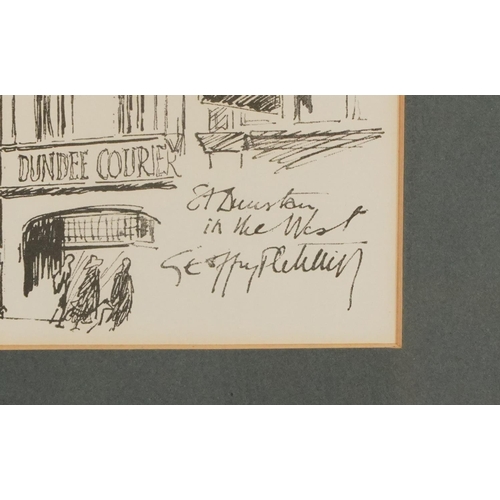 DUNDEE COURIER
St Dunstan
in the West
Geoffrey Fletcher